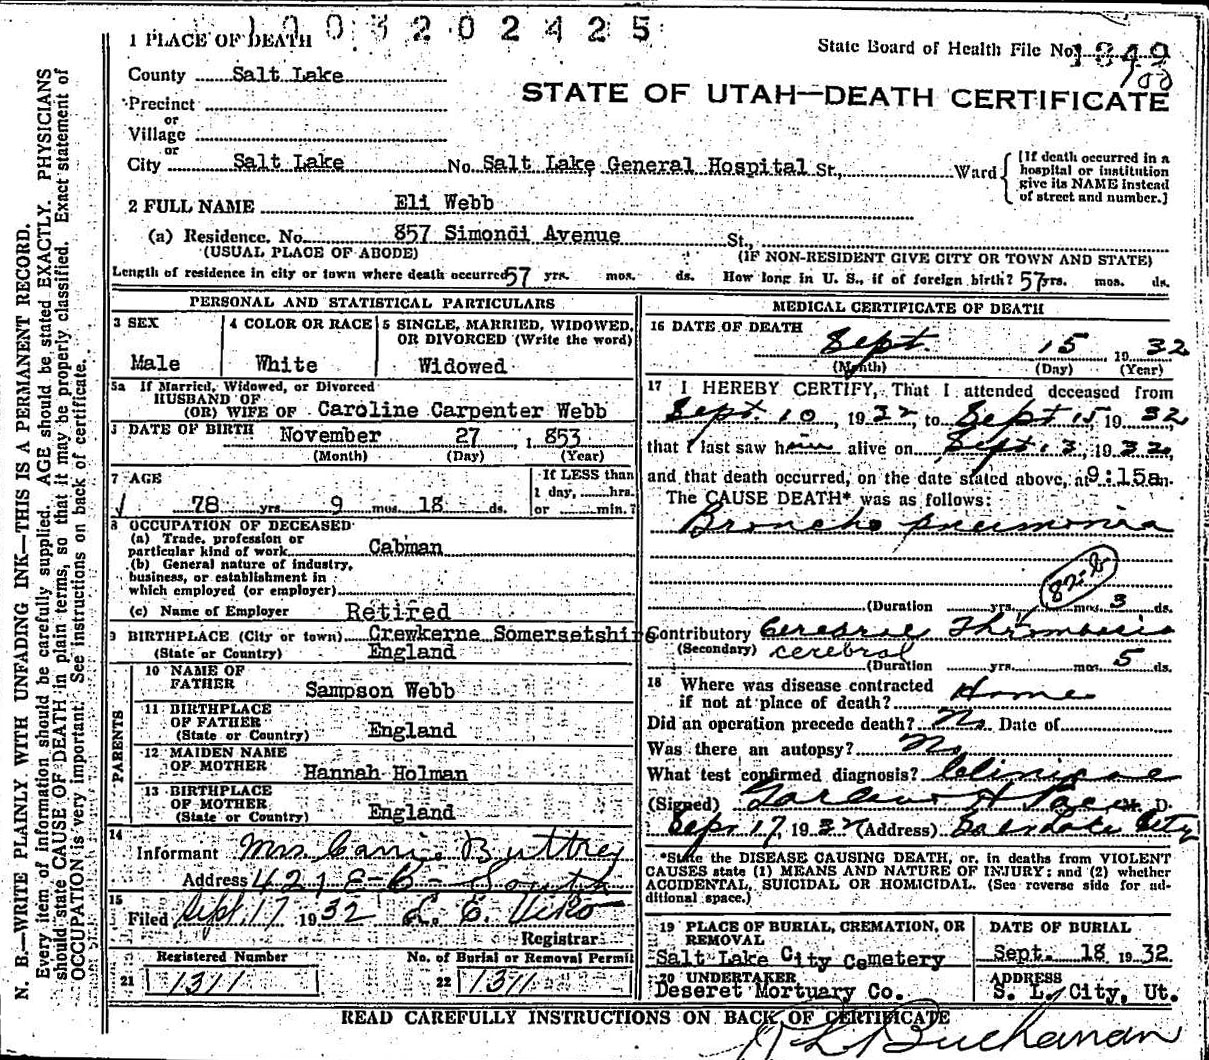 1003202425
1 PLACE OF DEATH
State Board of Health File No. 1849
County Salt Lake
STATE OF UTAH—DEATH CERTIFICATE
Precinct
or
Village
or
City Salt Lake No. Salt Lake General Hospital St., Ward
[If death occurred in a
hospital or institution
give its NAME instead
of street and number.]
2 FULL NAME Eli Webb
(a) Residence. No. 857 Simondi Avenue St.,
(USUAL PLACE OF ABODE) (IF NON-RESIDENT GIVE CITY OR TOWN AND STATE)
Length of residence in city or town where death occurred 57 yrs. mos. ds. How long in U. S., if of foreign birth? 57 yrs. mos. ds.
PERSONAL AND STATISTICAL PARTICULARS
3 SEX 4 COLOR OR RACE 5 SINGLE, MARRIED, WIDOWED,
OR DIVORCED (Write the word)
Male White Widowed
5a If Married, Widowed, or Divorced
HUSBAND OF
(OR) WIFE OF Caroline Carpenter Webb
DATE OF BIRTH November 27 1853
(Month) (Day) (Year)
7 AGE If LESS than
1 day, hrs.
78 yrs. 9 mos. 18 ds. or min.?
8 OCCUPATION OF DECEASED
(a) Trade, profession or
particular kind of work Cabman
(b) General nature of industry,
business, or establishment in
which employed (or employer)
(c) Name of Employer Retired
9 BIRTHPLACE (City or town) Crewkerne Somersetshire
(State or Country) England
PARENTS
10 NAME OF
FATHER Sampson Webb
11 BIRTHPLACE
OF FATHER
(State or Country) England
12 MAIDEN NAME
OF MOTHER Hannah Holman
13 BIRTHPLACE
OF MOTHER
(State or Country) England
14
Informant Mrs. Carrie Buttrey
Address 421 E-6- South
15
Filed Sept. 17 1932 L. E. Viko
Registrar.
Registered Number No. of Burial or Removal Permit
21 1311 22 1311
MEDICAL CERTIFICATE OF DEATH
16 DATE OF DEATH
Sept. 15 1932
(Month) (Day) (Year)
17 I HEREBY CERTIFY, That I attended deceased from
Sept. 10, 1932, to Sept 15 1932
that I last saw him alive on Sept. 13, 1932,
and that death occurred, on the date stated above, at 9:15a m.
The CAUSE DEATH* was as follows:
Broncho pneumonia
82-b
(Duration yrs. mos. 3 ds.
Contributory Cerebral Thrombosis
(Secondary) cerebral
(Duration yrs. mos. 5 ds.
18 Where was disease contracted
if not at place of death? Home
Did an operation precede death? No Date of
Was there an autopsy? No
What test confirmed diagnosis? Clinical
(Signed) M. D.
Sept 17, 1932 (Address) Salt Lake City
*State the DISEASE CAUSING DEATH, or, in deaths from VIOLENT
CAUSES state (1) MEANS AND NATURE OF INJURY; and (2) whether
ACCIDENTAL, SUICIDAL OR HOMICIDAL. (See reverse side for ad-
ditional space.)
19 PLACE OF BURIAL, CREMATION, OR
REMOVAL
Salt Lake City Cemetery
DATE OF BURIAL
Sept. 18 1932.
20 UNDERTAKER
Deseret Mortuary Co.
ADDRESS
S. L. City, Ut.
READ CAREFULLY INSTRUCTIONS ON BACK OF CERTIFICATE
Buchanan
N. B.—WRITE PLAINLY WITH UNFADING INK—THIS IS A PERMANENT RECORD.
Every item of information should be carefully supplied. AGE should be stated EXACTLY. PHYSICIANS
should state CAUSE OF DEATH in plain terms, so that it may be properly classified. Exact statement of
OCCUPATION is very important. See instructions on back of certificate.